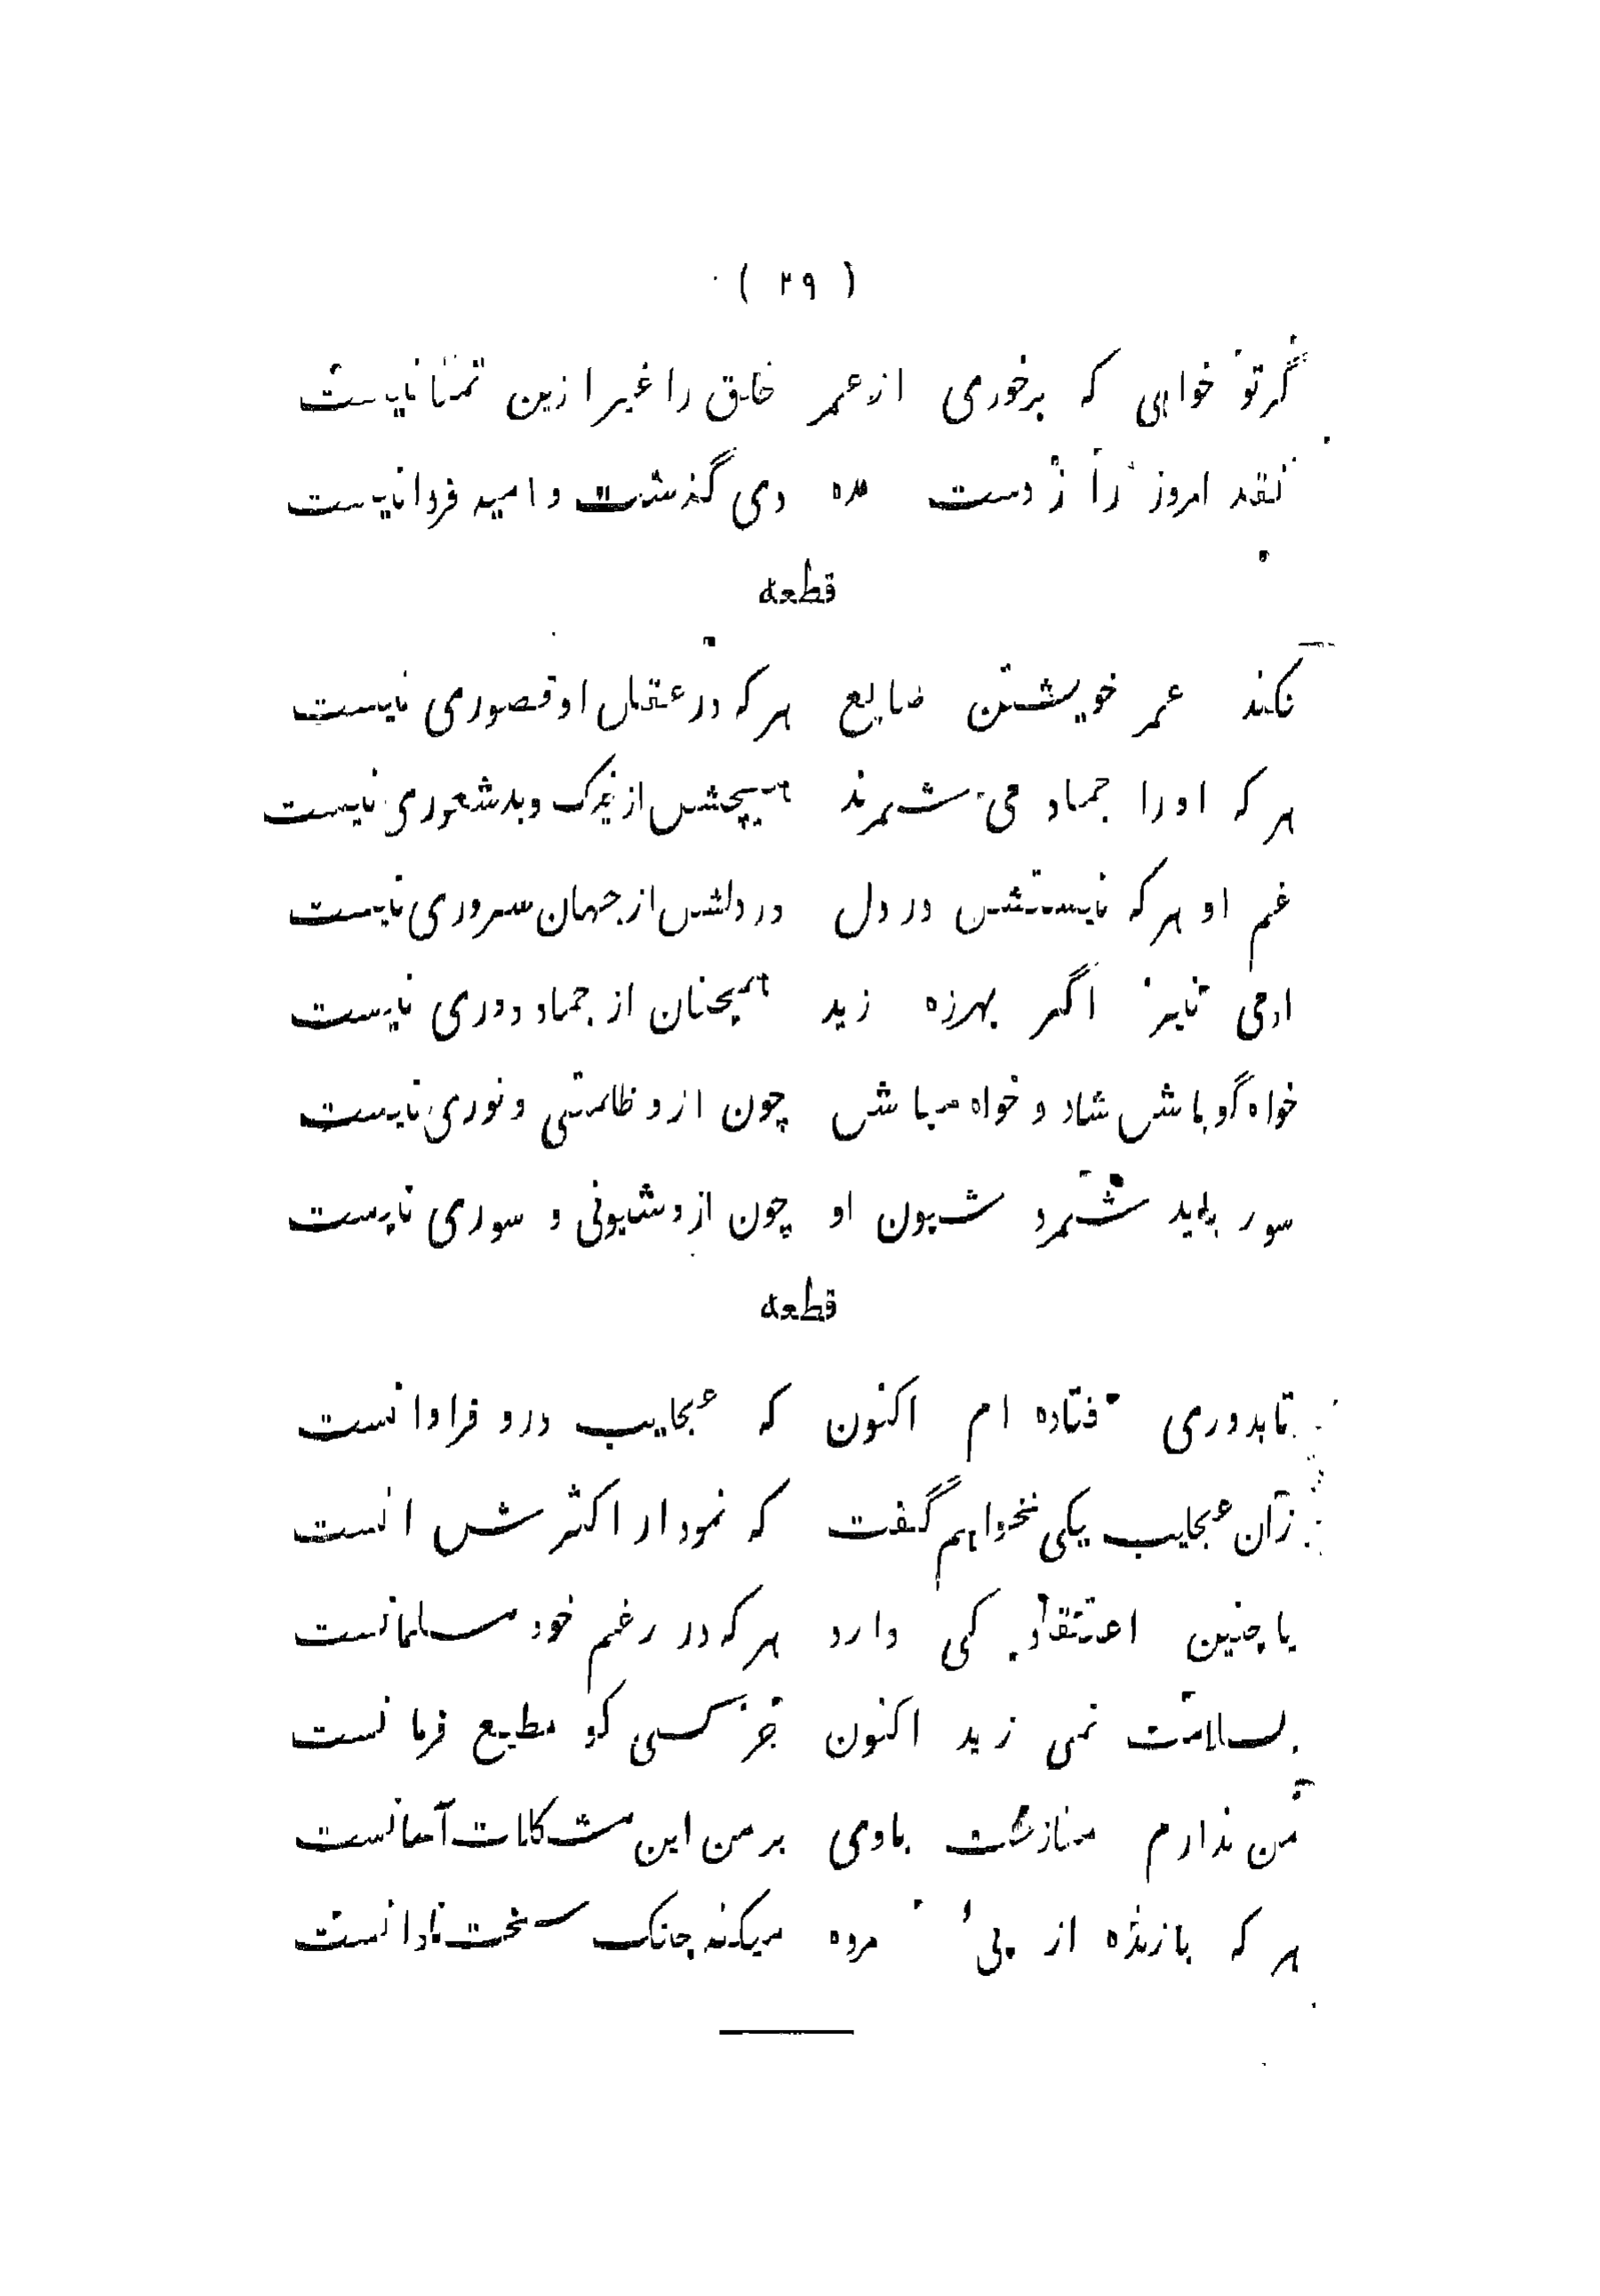 ( ۲۹ )
گر تو خواهی که برخوری از عمر خلق را غیر ازین تمنا نیست
نقد امروز را ز دست مده دی گذشت و امید فردا نیست
قطعه
نکند عمر خویشتن ضایع هر که در عقل او قصوری نیست
هر که اورا جماد می شمرند هیچش از نیک و بد شعوری نیست
غم او هر که نیستش در دل در دلش از جهان سروری نیست
ادمی نیز اگر بهرزه زید همچنان از جماد دوری نیست
خواه گو باش شاد و خواه مباش چون ازو ظلمتی و نوری نیست
سور باید شمرد شیون او چون ازو شیونی و سوری نیست
قطعه
تا بدوری فتاده ام اکنون که عجایب درو فراوانست
زان عجایب یکی نخواهم گفت که نمودار اکثرش انست
با چنین اعتقاد کی دارد هر که در زعم خود مسلمانست
بسلامت نمی زید اکنون جز کسی کو مطیع فرمانست
من ندارم منازعت باوی بر من این مشکلات آسانست
هر که بازنده از پی مرده میکند جنک سخت نادانست